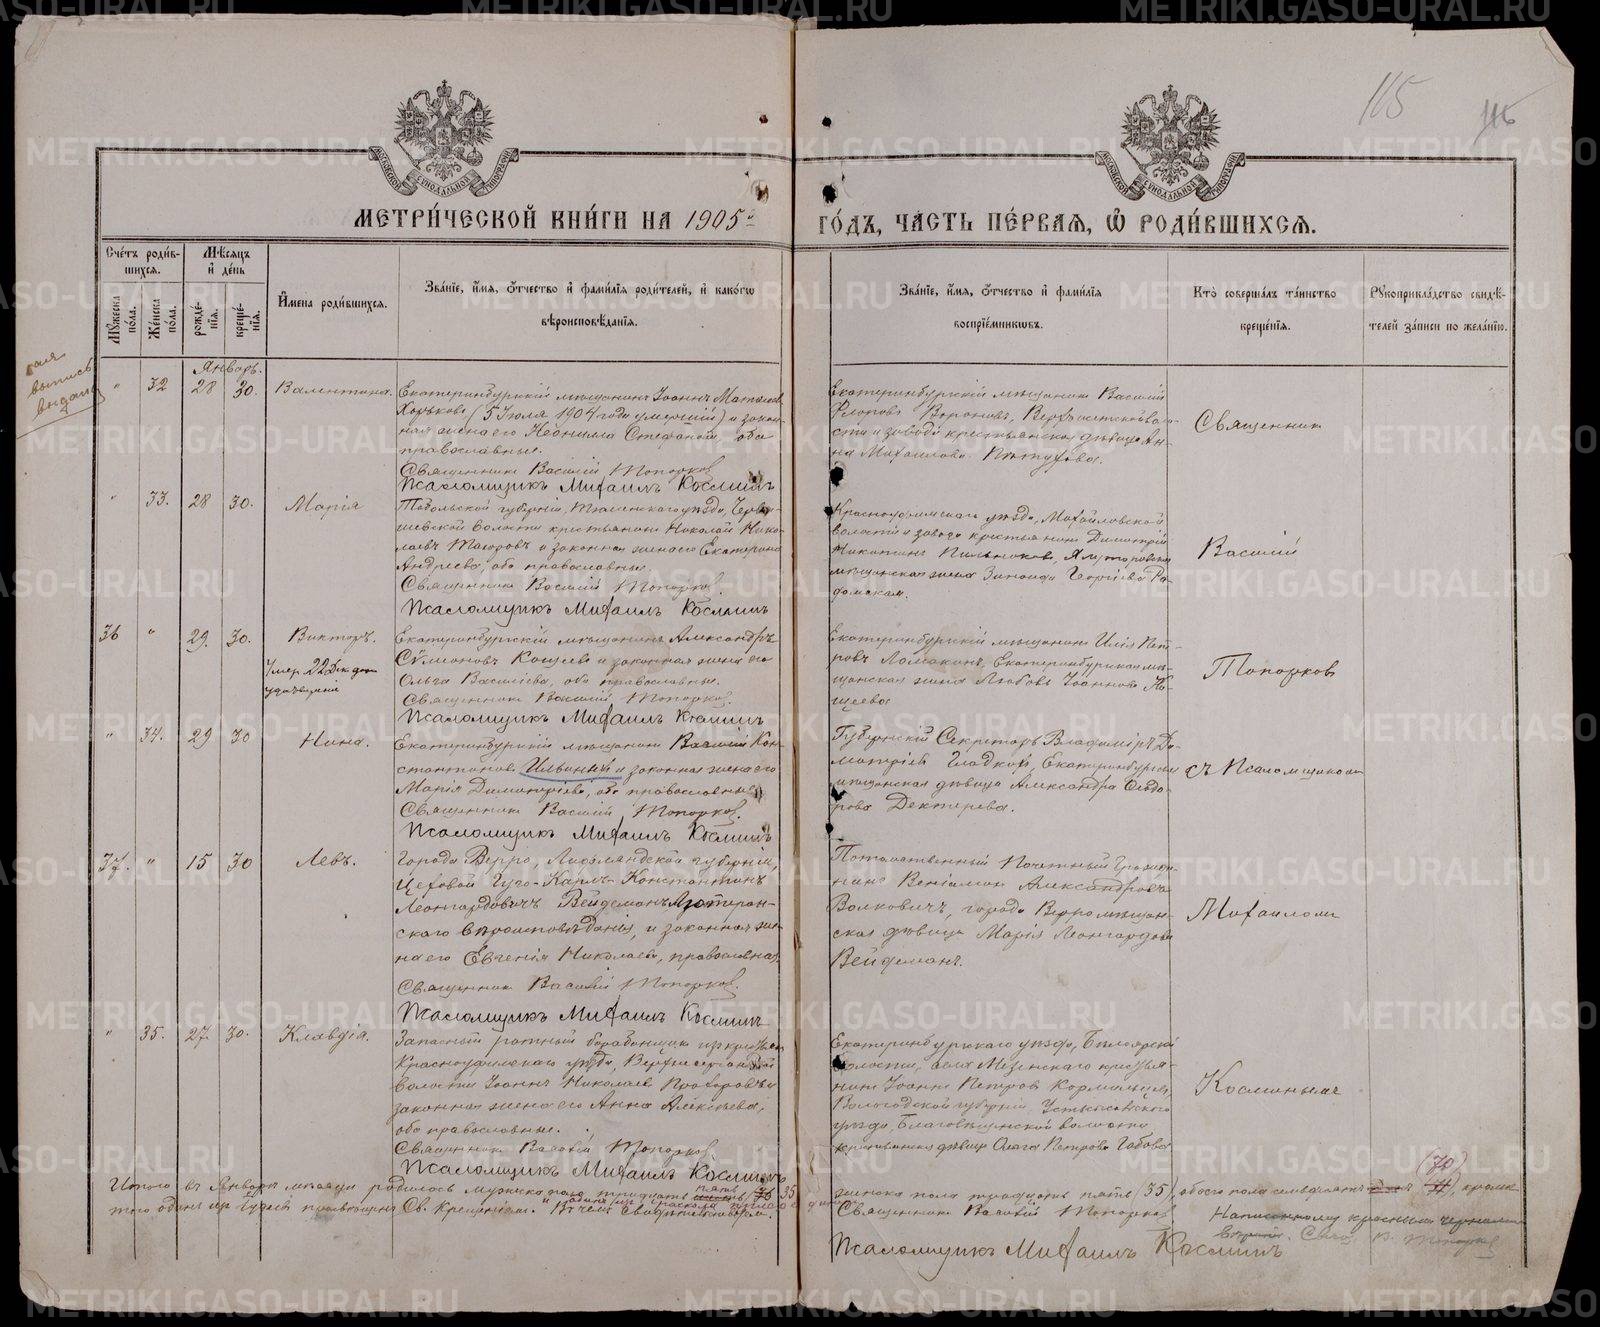 115
МЕТРИ́ЧЕСКОЙ КНИ́ГИ НА 1905й ГО́ДЪ, ЧА́СТЬ ПЕ́РВАЯ, Ѿ РОДИ́ВШИХСЯ.
Сче́тъ роди́в-
шихся.
Му́жеска по́ла.
Же́нска по́ла.
Мѣ́сяцъ
и́ де́нь
рожде́-
нія.
креще́-
нія.
И́мена роди́вшихся.
Зва́ніе, и́мя, о́тчество и́ фами́лія роди́телей, и́ како́гѡ
вѣроисповѣ́данія.
Зва́ніе, и́мя, о́тчество и́ фами́лія
воспріе́мниковъ.
Кто̀ соверша́лъ та́инство
креще́нія.
Рукоприкла́дство свидѣ́-
телей за́писи по жела́нію.
выпись
выдана
Январь.
" 32 28 30. Валентина.
Екатеринбургскій мѣщанинъ Іоаннъ
Хорьковъ (5 Іюля 1904 года умершій) и закон-
ная жена его Неонилла Стефанова, оба
православные.
Священникъ Василій Топорковъ
Псаломщикъ Михаилъ Косминъ
Екатеринбургскій мѣщанинъ Василій
Вороновъ,
сти и завода крестьянская дѣвица Ан-
на Михаилова Пѣтухова.
Священникъ
" 33. 28 30. Марія
Тобольской губерніи, Тюменскаго уѣзда, Черви-
шевской волости крестьянинъ Николай Нико-
лаевъ и законная жена его Екатерина
Андреева, оба православные.
Священникъ Василій Топорковъ.
Псаломщикъ Михаилъ Косминъ
Красноуфимскаго уѣзда, Михайловской
волости и завода крестьянинъ Димитрій
Никитинъ Пильниковъ, Ялуторовская
мѣщанская жена Зинаида Георгіева Ра-
домская.
Василій
36 " 29. 30. Викторъ.
Умер 22 Дек
Екатеринбургскій мѣщанинъ Александръ
Симеоновъ Кощеевъ и законная жена его
Ольга Василіева, оба православные.
Священникъ Василій Топорковъ.
Псаломщикъ Михаилъ Косминъ
Екатеринбургскій мѣщанинъ Илія Пет-
ровъ Ломакинъ, Екатеринбургская мѣ-
щанская жена Любовь Іоаннова Ко-
щеева
Топорковъ
" 34. 29 30 Нина.
Екатеринбургскій мѣщанинъ Василій Кон-
стантиновъ Ильиныхъ и законная жена его
Марія Димитріева, оба православные
Священникъ Василій Топорковъ.
Псаломщикъ Михаилъ Косминъ
Губернскій Секретарь Владиміръ Ди-
митріевъ Гладкой, Екатеринбургская
мѣщанская дѣвица Александра Ѳеодо-
рова Дектерева.
съ Псаломщикомъ
37. " 15 30 Левъ.
Города Верро, Лифляндской губерніи,
Цеховой Гуго-Карлъ-Константинъ
Леонгардовичъ Вейдеманъ Лютеран-
скаго вѣроисповѣданія, и законная же-
на его Евгенія Николаева, православная.
Священникъ Василій Топорковъ.
Псаломщикъ Михаилъ Косминъ
Потомственный Почетный Гражда-
нинъ Веніаминъ Александровичъ
Волковичъ, города Верро мѣщан-
ская дѣвица Марія Леонгардова
Вейдеманъ.
Михаиломъ
" 35. 27. 30. Клавдія.
Запасный ратный барабанщикъ изъ крестьянъ
Красноуфимскаго уѣзда, Верхнесергинской
волости Іоаннъ Николаевъ Прохоровъ и
законная жена его Анна Алексѣева,
оба православные.
Священникъ Василій Топорковъ
Псаломщикъ Михаилъ Косминъ
Екатеринбургскаго уѣзда, Бѣлоярской
волости, села Мезенскаго крестья-
нинъ Іоаннъ Петровъ Кормильцевъ,
Вологодской губерніи Устьсысольскаго
уѣзда, Благовѣщенской волости
крестьянская дѣвица Ольга Петрова Габова
Косминымъ
Итого въ Январѣ мѣсяцѣ родилось мужска пола тридцать пять 35 женска пола тридцать пять (35), обоего пола семьдесятъ (70), кромѣ
того одинъ изъ просвѣщенъ Св. Крещеніемъ. Въ чемъ свидѣтельствуемъ.
Священникъ Василій Топорковъ
Псаломщикъ Михаилъ Косминъ
Написанному красными чернилами
вѣрить. Свящ. В. Топорковъ
METRIKI.GASO-URAL.RU